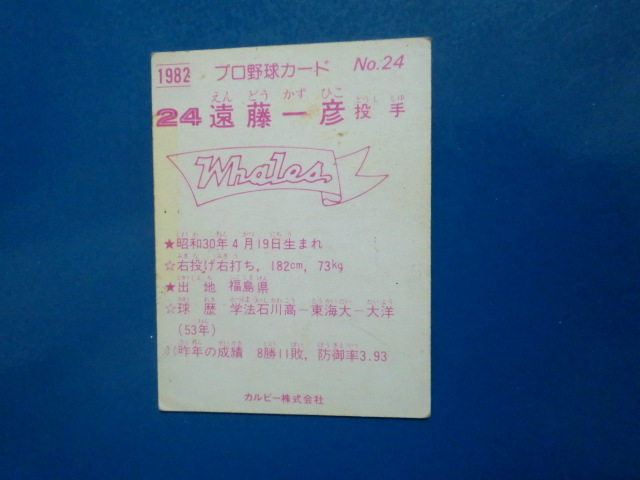 1982 プロ野球カード No.24
えん どう かず ひこ とうしゅ
24 遠藤一彦 投手
Whales
★昭和30年4月19日生まれ
☆右投げ右打ち, 182cm, 73kg
★出 地 福島県
☆球 歴 学法石川高－東海大－大洋
(53年)
昨年の成績 8勝11敗, 防御率3.93
カルビー株式会社